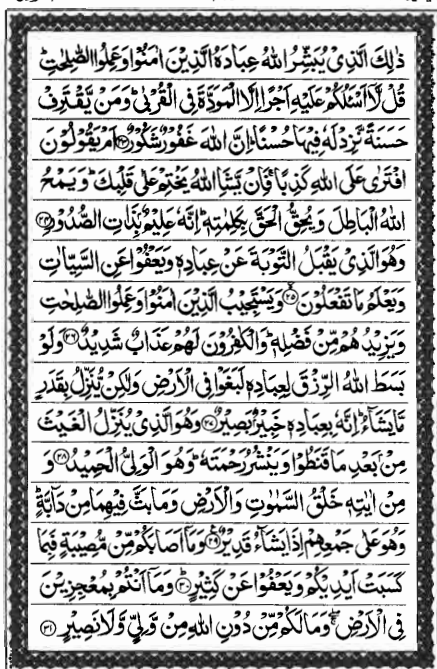 ذٰلِكَ الَّذِیْ یُبَشِّرُ اللّٰهُ عِبَادَهُ الَّذِیْنَ اٰمَنُوْا وَعَمِلُوا الصّٰلِحٰتِ ؕ
قُلْ لَّاۤ اَسْـَٔلُكُمْ عَلَیْهِ اَجْرًا اِلَّا الْمَوَدَّةَ فِی الْقُرْبٰی ؕ وَمَنْ یَّقْتَرِفْ
حَسَنَةً نَّزِدْ لَهٗ فِیْهَا حُسْنًا ؕ اِنَّ اللّٰهَ غَفُوْرٌ شَكُوْرٌ ﴿۲۳﴾ اَمْ یَقُوْلُوْنَ
افْتَرٰی عَلَی اللّٰهِ كَذِبًا ۚ فَاِنْ یَّشَاِ اللّٰهُ یَخْتِمْ عَلٰی قَلْبِكَ ؕ وَیَمْحُ
اللّٰهُ الْبَاطِلَ وَیُحِقُّ الْحَقَّ بِكَلِمٰتِهٖ ؕ اِنَّهٗ عَلِیْمٌۢ بِذَاتِ الصُّدُوْرِ ﴿۲۴﴾
وَهُوَ الَّذِیْ یَقْبَلُ التَّوْبَةَ عَنْ عِبَادِهٖ وَیَعْفُوْا عَنِ السَّیِّاٰتِ
وَیَعْلَمُ مَا تَفْعَلُوْنَ ﴿۲۵﴾ وَیَسْتَجِیْبُ الَّذِیْنَ اٰمَنُوْا وَعَمِلُوا الصّٰلِحٰتِ
وَیَزِیْدُهُمْ مِّنْ فَضْلِهٖ ؕ وَالْكٰفِرُوْنَ لَهُمْ عَذَابٌ شَدِیْدٌ ﴿۲۶﴾ وَلَوْ
بَسَطَ اللّٰهُ الرِّزْقَ لِعِبَادِهٖ لَبَغَوْا فِی الْاَرْضِ وَلٰكِنْ یُّنَزِّلُ بِقَدَرٍ
مَّا یَشَآءُ ؕ اِنَّهٗ بِعِبَادِهٖ خَبِیْرٌۢ بَصِیْرٌ ﴿۲۷﴾ وَهُوَ الَّذِیْ یُنَزِّلُ الْغَیْثَ
مِنْۢ بَعْدِ مَا قَنَطُوْا وَیَنْشُرُ رَحْمَتَهٗ ؕ وَهُوَ الْوَلِیُّ الْحَمِیْدُ ﴿۲۸﴾ وَ
مِنْ اٰیٰتِهٖ خَلْقُ السَّمٰوٰتِ وَالْاَرْضِ وَمَا بَثَّ فِیْهِمَا مِنْ دَآبَّةٍ ؕ
وَهُوَ عَلٰی جَمْعِهِمْ اِذَا یَشَآءُ قَدِیْرٌ ﴿۲۹﴾ وَمَاۤ اَصَابَكُمْ مِّنْ مُّصِیْبَةٍ فَبِمَا
كَسَبَتْ اَیْدِیْكُمْ وَیَعْفُوْا عَنْ كَثِیْرٍ ﴿۳۰﴾ وَمَاۤ اَنْتُمْ بِمُعْجِزِیْنَ
فِی الْاَرْضِ ۖۚ وَمَا لَكُمْ مِّنْ دُوْنِ اللّٰهِ مِنْ وَّلِیٍّ وَّلَا نَصِیْرٍ ﴿۳۱﴾